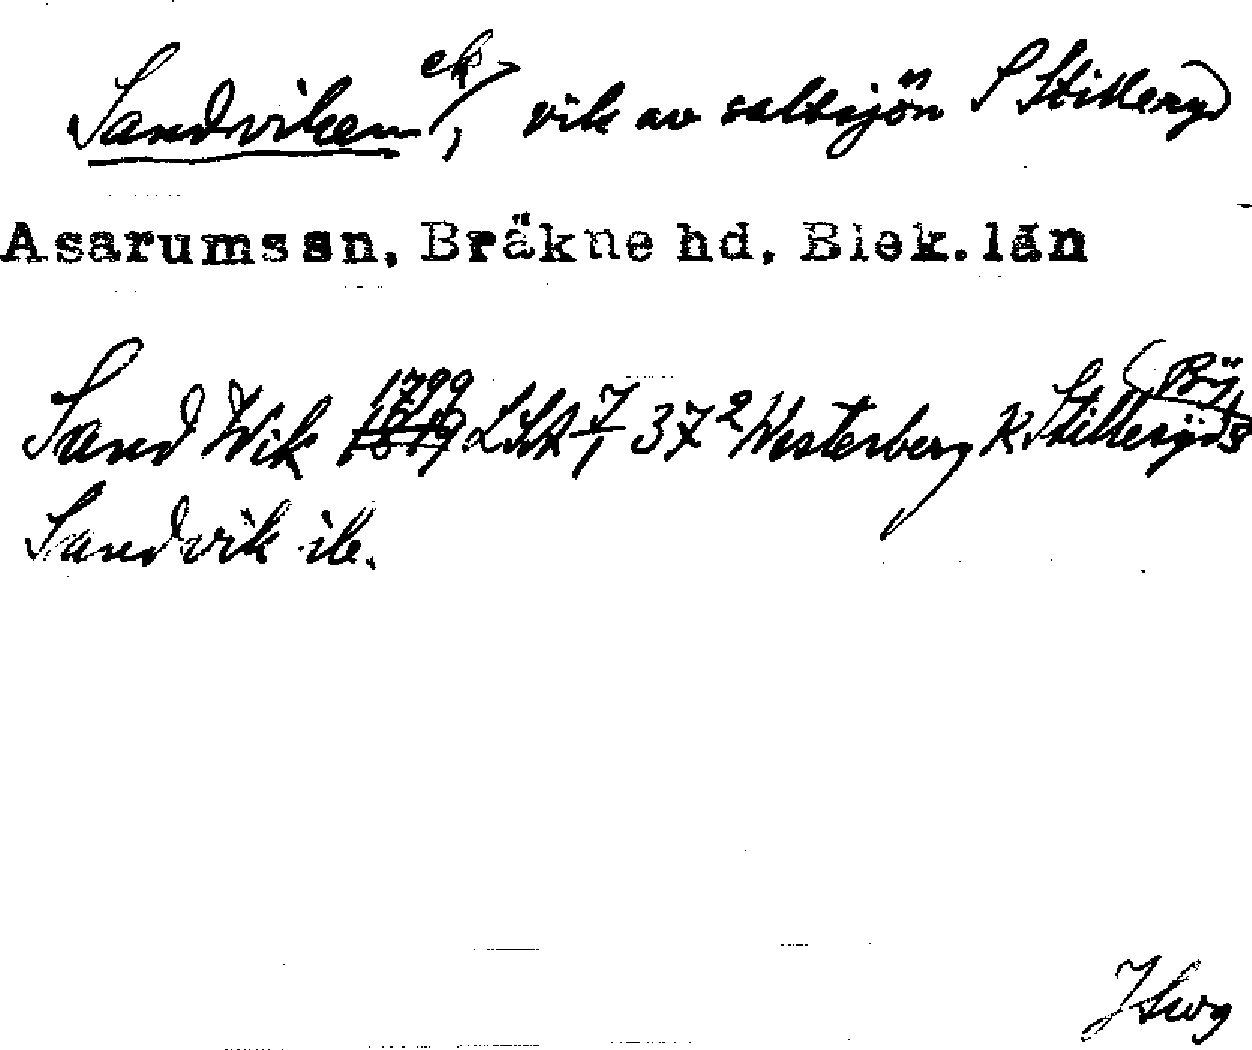 Sandviken, ek vik av saltsjön S Stilleryd
Asarums sn, Bräkne hd, Blek. län
Sand Wik 1799 LSA 7/1 37² Westerberg K Stilleryds By
Sandvik ib.